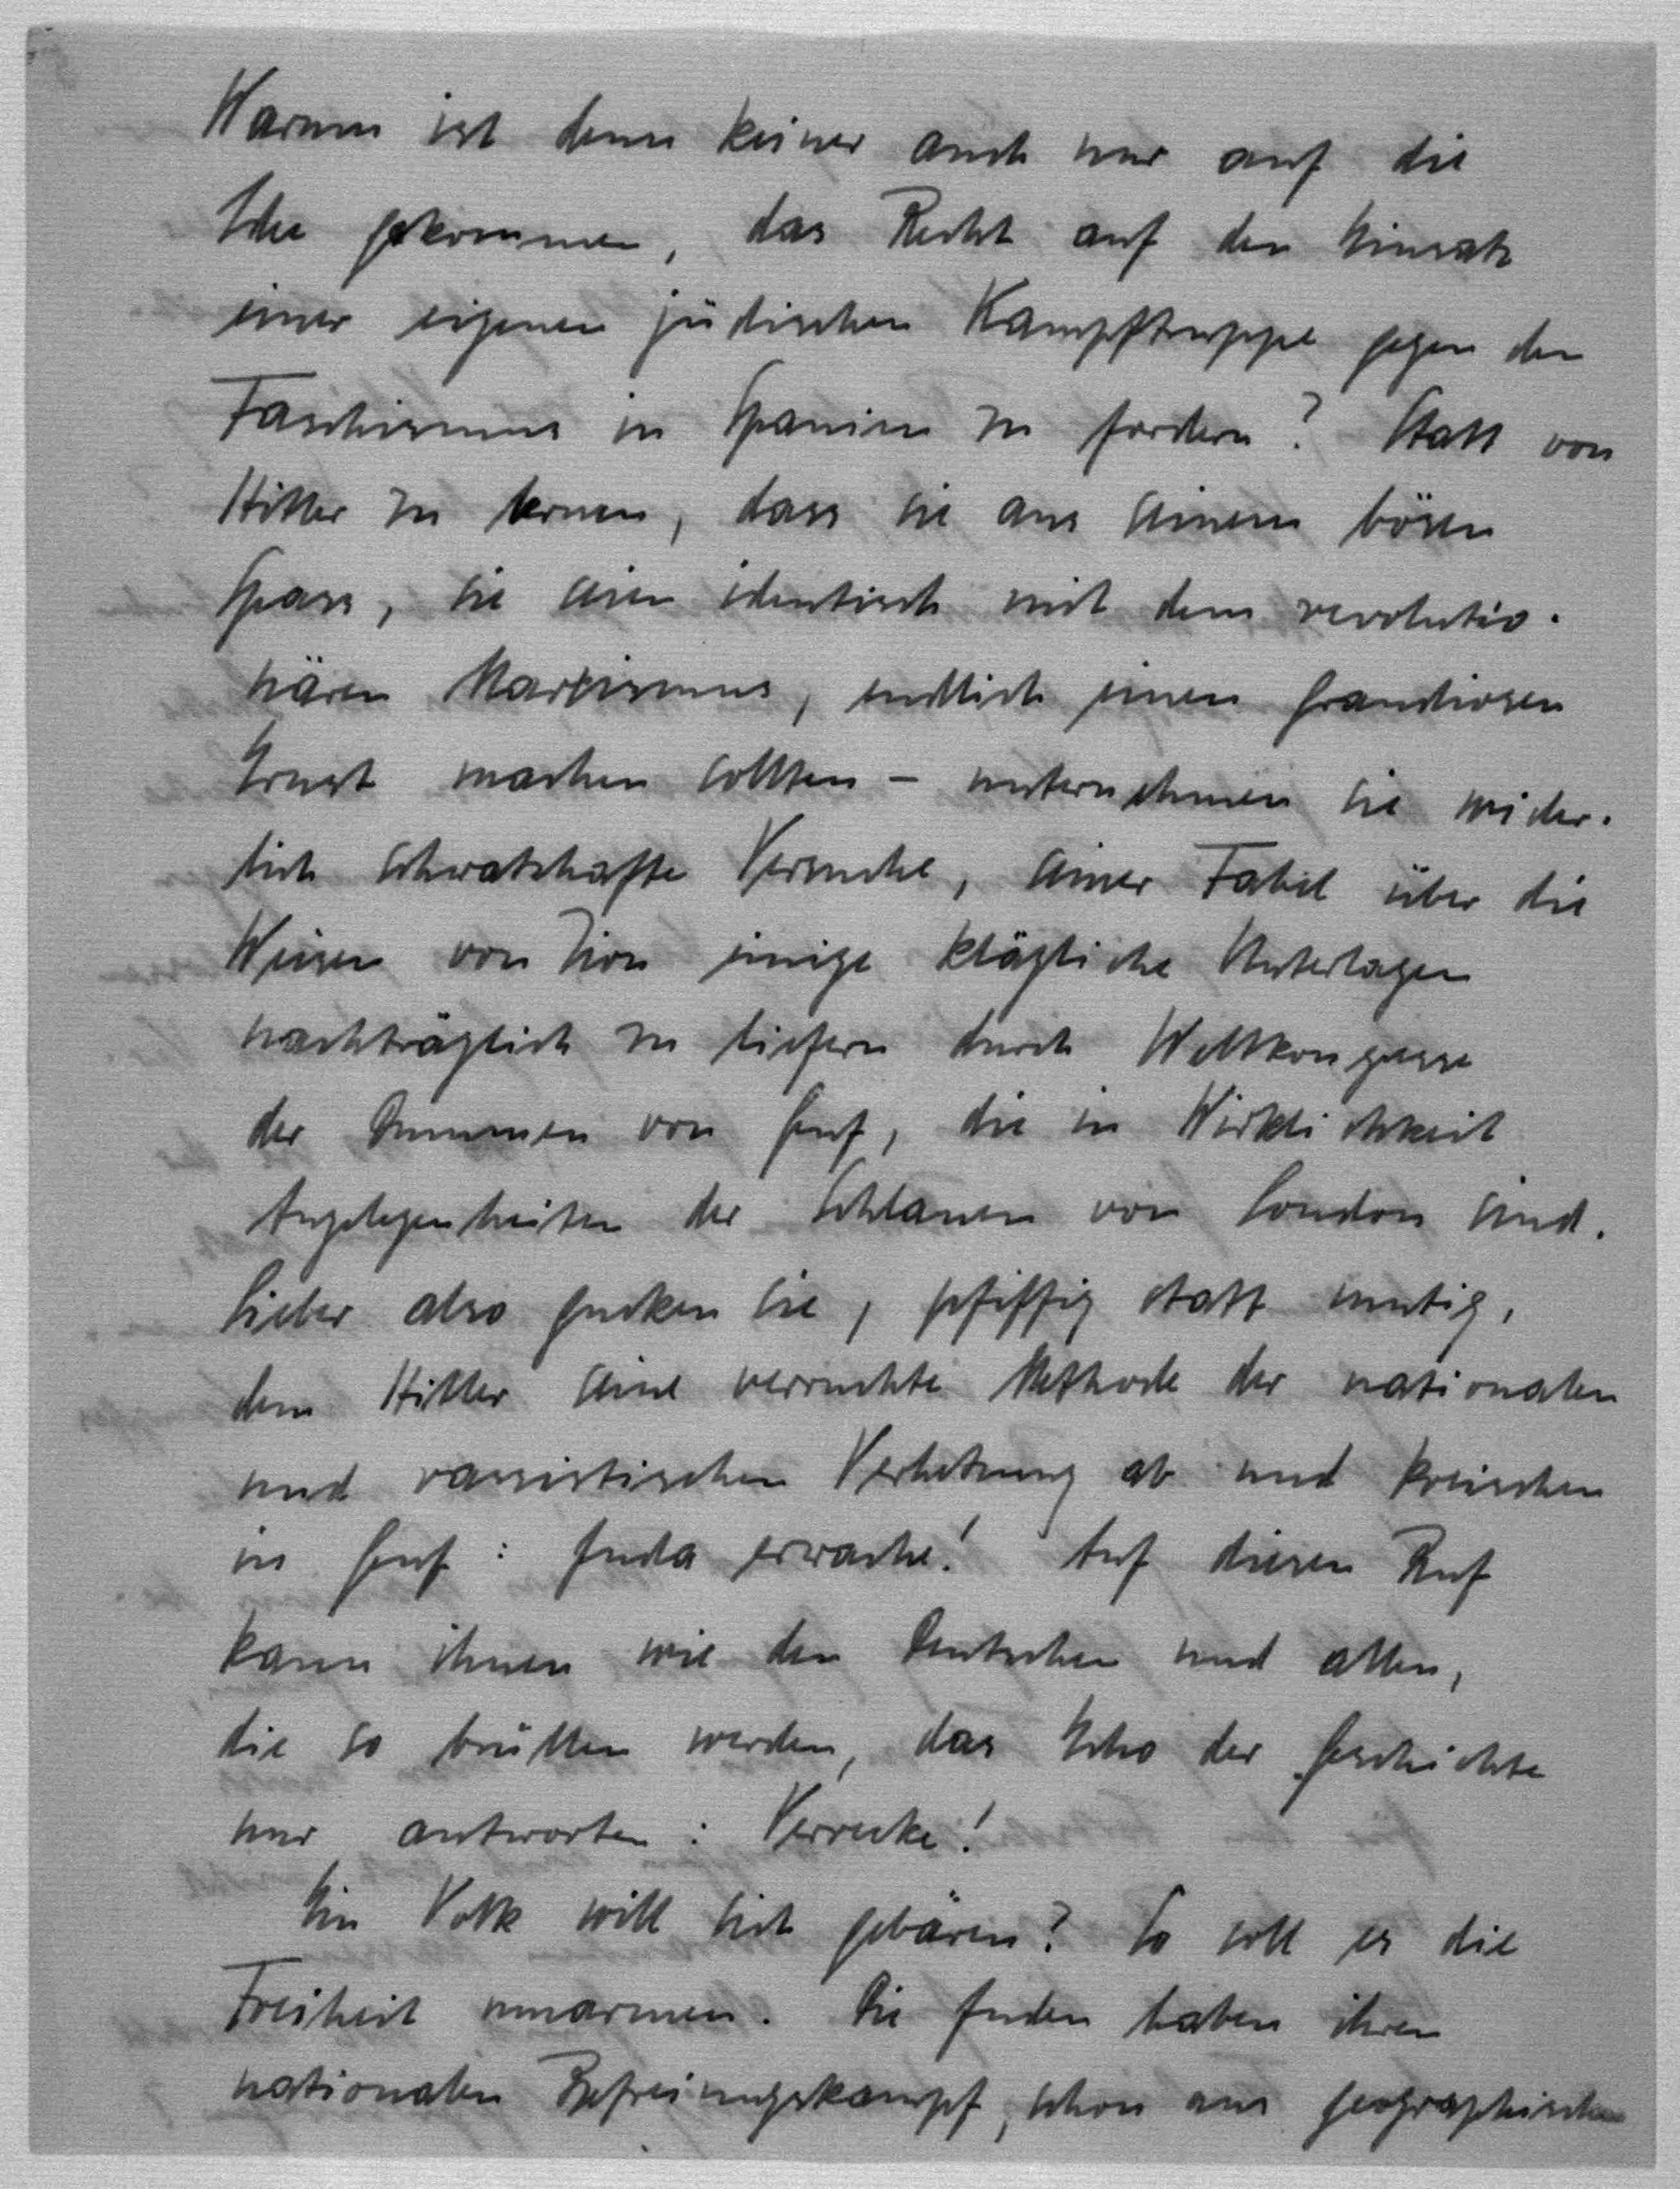 Warum ist denn keiner auch nur auf die
Idee gekommen, das Recht auf den Einsatz
einer eigenen jüdischen Kampftruppe gegen den
Faschismus in Spanien zu fordern? Statt von
Hitler zu lernen, dass sie aus seinem bösen
Spass, sie seien identisch mit dem revolutio-
nären Marxismus, endlich einen grandiosen
Ernst machen sollten – unternehmen sie wider-
lich schwatzhafte Versuche, seiner Fabel über die
Weisen von Zion einige klägliche Unterlagen
nachträglich zu liefern durch Weltkongresse
der Dummen von Genf, die in Wirklichkeit
Angelegenheiten der Schlauen von London sind.
Lieber also gucken sie, pfiffig statt mutig,
dem Hitler seine verruchte Methode der nationalen
und rassistischen Verhetzung ab und kreischen
in Genf: Juda erwache! Auf diesen Ruf
kann ihnen wie den Deutschen und allen,
die so brüllen werden, das Echo der Geschichte
nur antworten: Verrecke!
Ein Volk will sich gebären? So soll es die
Freiheit umarmen. Die Juden haben ihren
nationalen Befreiungskampf, schon aus geographischen